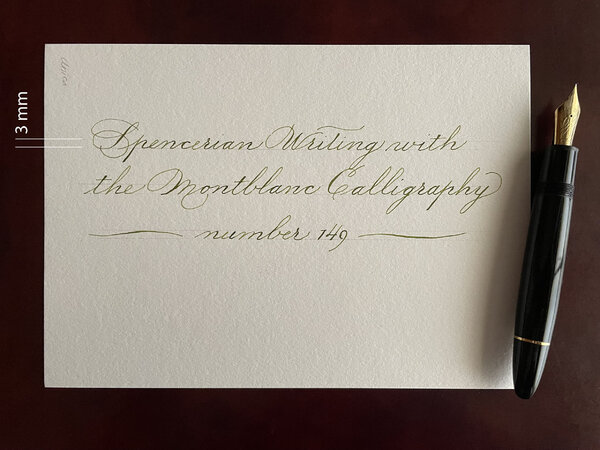 3 mm
Spencerian Writing with
the Montblanc Calligraphy
number 149